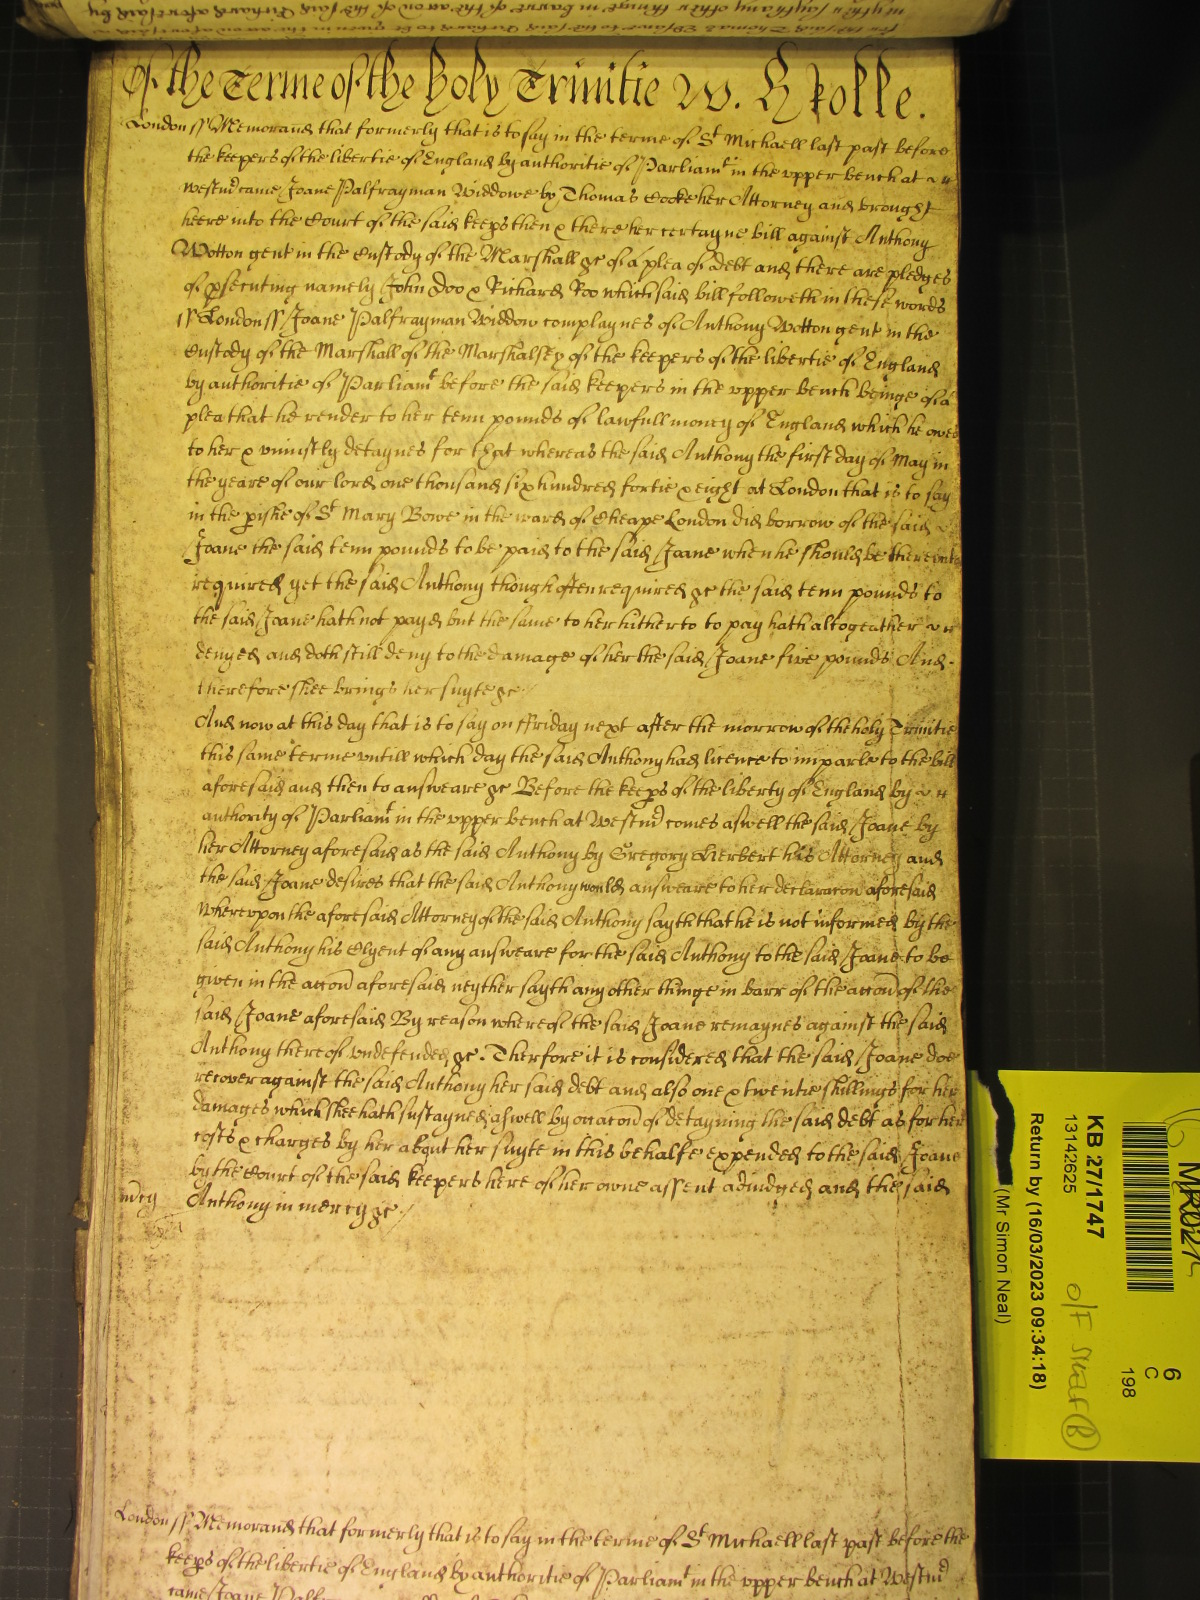 Of the Terme of the holy Trinitie W. H Rolle.
London ss Memorand that formerly that is to say in the terme of St Michaell last past before
the keepers of the libertie of England by authoritie of Parliamt in the upper bench at
westmd came Joane Palfrayman Widdowe by Thomas Cooke her Attorney and brought
heere into the Court of the said keeps then & there her certayne bill against Anthony
Wotton gent in the Custody of the Marshall &c of a plea of debt and there are pledges
of psecuting namely John Doo & Richard Roo which said bill followeth in these words
ss London ss Joane Palfrayman Widdow complaynes of Anthony Wotton gent in the
Custody of the Marshall of the Marshalsey of the keepers of the libertie of England
by authoritie of Parliamt before the said keepers in the upper bench beinge of a
plea that he render to her tenn pounds of lawfull money of England which he owes
to her & uniustly detaynes for that whereas the said Anthony the first day of May in
the yeare of our lord one thousand six hundred fortie & eight at London that is to say
in the pishe of St Mary Bowe in the ward of Cheape London did borrow of the said
Joane the said tenn pounds to be paid to the said Joane when he should be thereunto
required yet the said Anthony though often required &c the said tenn pounds to
the said Joane hath not payd but the same to her hitherto to pay hath altogeather
denyed and doth still deny to the damage of her the said Joane five pounds And
therefore shee brings her suyte &c
And now at this day that is to say on ffriday next after the morrow of the holy Trinitie
this same terme untill which day the said Anthony had licence to imparle to the bill
aforesaid and then to answeare &c Before the keeps of the liberty of England by
authority of Parliamt in the upper bench at Westmd comes aswell the said Joane by
her Attorney aforesaid as the said Anthony by Gregory Herbert his Attorney and
the said Joane desires that the said Anthony would answeare to her declaracon aforesaid
Whereupon the aforesaid Attorney of the said Anthony sayth that he is not informed by the
said Anthony his Clyent of any answeare for the said Anthony to the said Joane to be
given in the accon aforesaid neyther sayth any other thinge in barr of the accon of the
said Joane aforesaid By reason whereof the said Joane remaynes against the said
Anthony thereof undefended &c. Therfore it is considered that the said Joane doe
recover against the said Anthony her said debt and also one & twentie shillings for her
damages which shee hath sustayned aswell by occacon of detayning the said debt as for her
costs & charges by her about her suyte in this behalfe expended to the said Joane
by the Court of the said keepers here of her owne assent adiudged and the said
mercy
Anthony in mercy &c
London ss Memorand that formerly that is to say in the terme of St Michaell last past before the
keeps of the libertie of England by authoritie of Parliamt in the upper bench at Westmd
came Joane
KB 27/1747
13142625
Return by (16/03/2023 09:34:18)
(Mr Simon Neal)
6
C
198